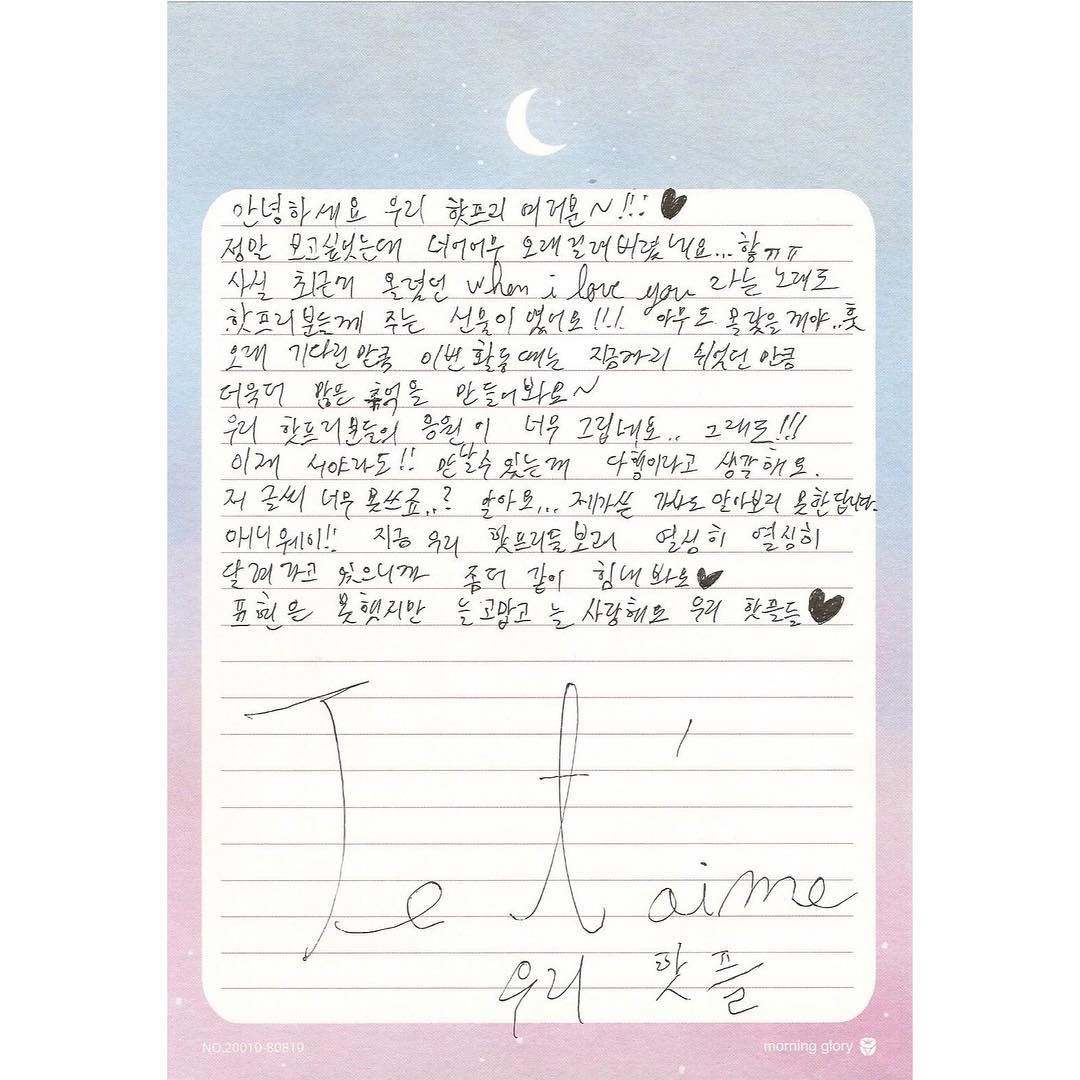 안녕하세요 우리 핫프리 여러분~!!! ♥
정말 보고싶엇는데 너어어무 오래걸려버렸네요...핳ㅠㅠ
사실 최근에 올렸던 when i love you 라는 노래도
핫프리분들께 주는 선물이였어요!!! 아무도 몰랏을꺼야..훗
오래 기다린만큼 이번 활동때는 지금까지 쉬엇던 만큼
더욱더 많은 추억을 만들어봐요~
우리 핫프리분들의 응원이 너무 그립네요.. 그래도!!!
이제 서야라도!! 만날수 있는게 다행이라고 생각해요.
저 글씨 너무 못쓰죠..? 알아요... 제가쓴 가사도 알아보지 못한답니다.
애니웨이!! 지금 우리 핫프리들보러 열심히 열심히
달려가고 있으니까 좀더 같이 힘내봐요♥
표현은 못햇지만 늘고맙고 늘 사랑해요 우리 핫플들♥
Je t'aime
우리 핫플
NO.20010-80819
morning glory